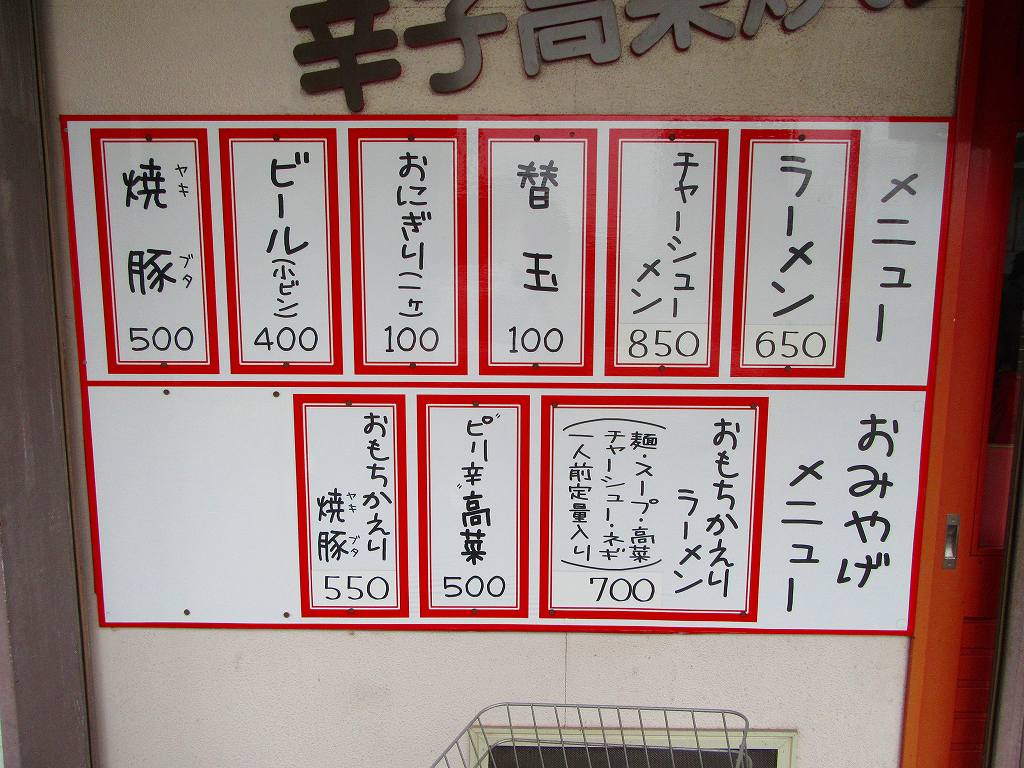 辛子高菜
メニュー
ラーメン
650
チャーシュー
メン
850
替玉
100
おにぎり(一ヶ)
100
ビール(小ビン)
400
焼豚
ヤキ
ブタ
500
おみやげ
メニュー
おもちかえり
ラーメン
(麺・スープ・高菜
チャーシュー・ネギ
一人前定量入り)
700
ピリ辛高菜
500
おもちかえり
焼豚
ヤキ
ブタ
550